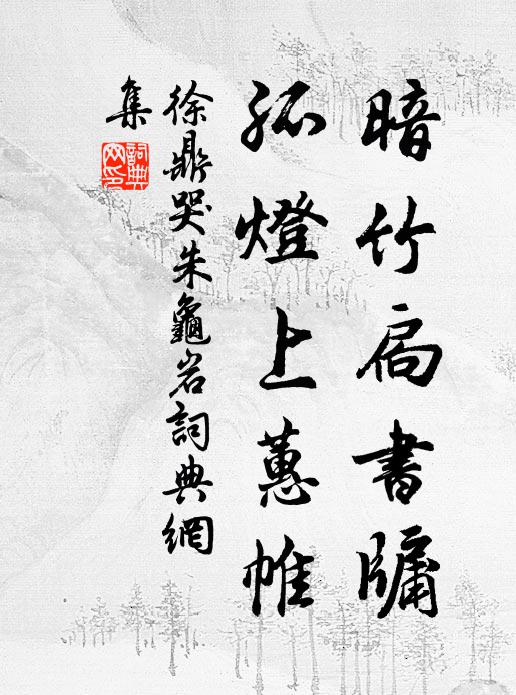 暗竹扃書牖
孤燈上蕙帷
徐鼎哭朱龜岩詞典網
集
詞典網印